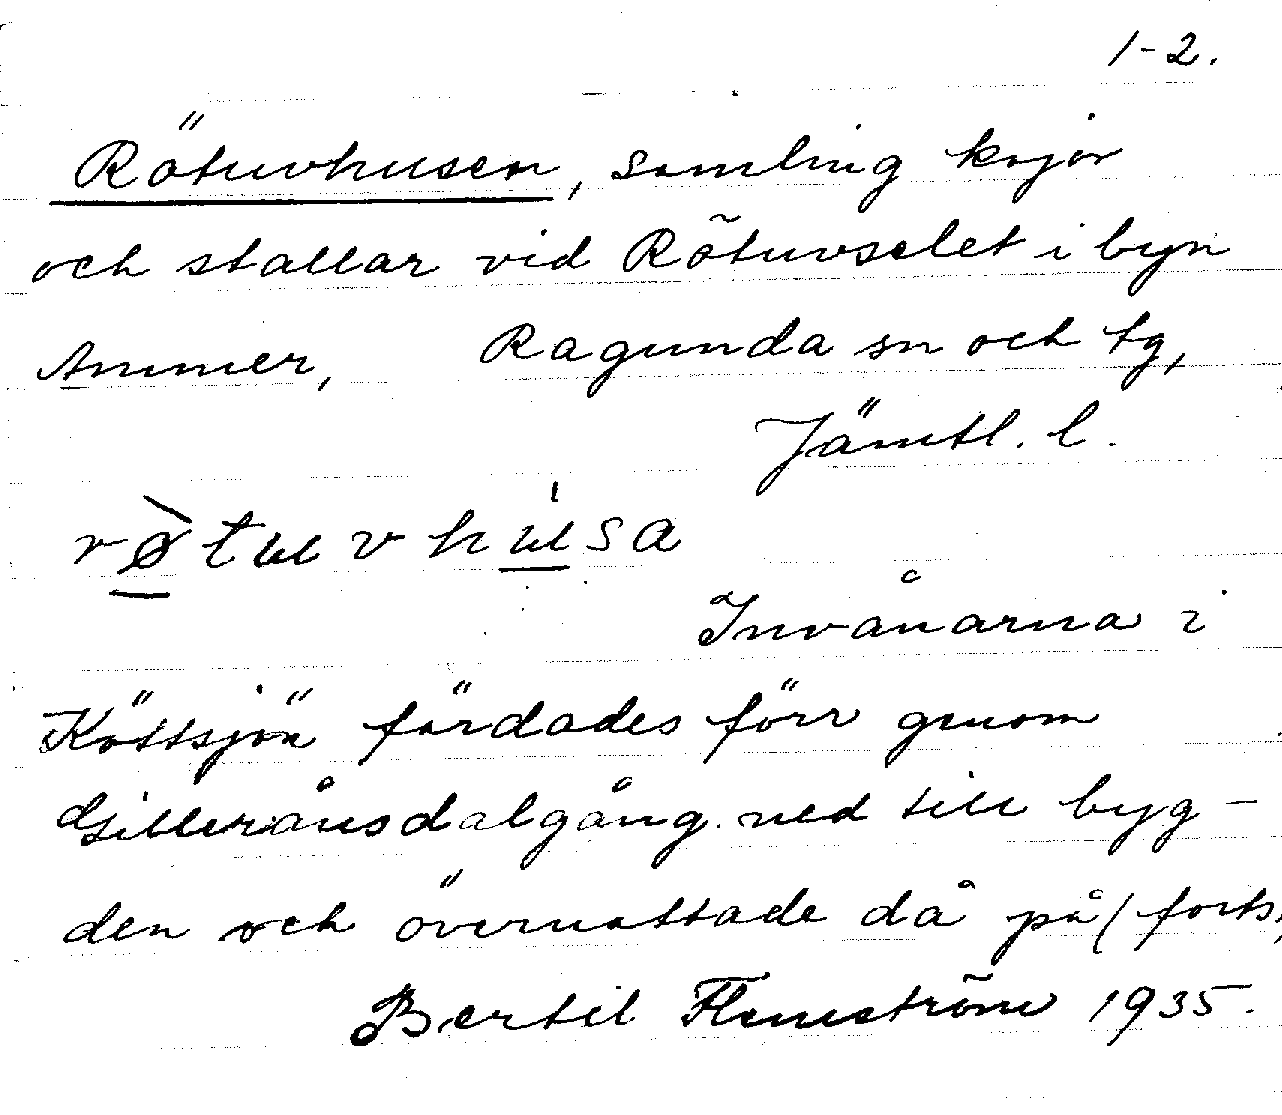 1-2.
Rötuvhusen, samling kojor
och stallar vid Rötuvselet i byn
Ammer, Ragunda sn och tg,
Jämtl. l.
Invånarna i
Köttsjön färdades förr genom
Gilleråns dalgång ned till byg-
den och övernattade då på (forts,
Bertil Flemström 1935.